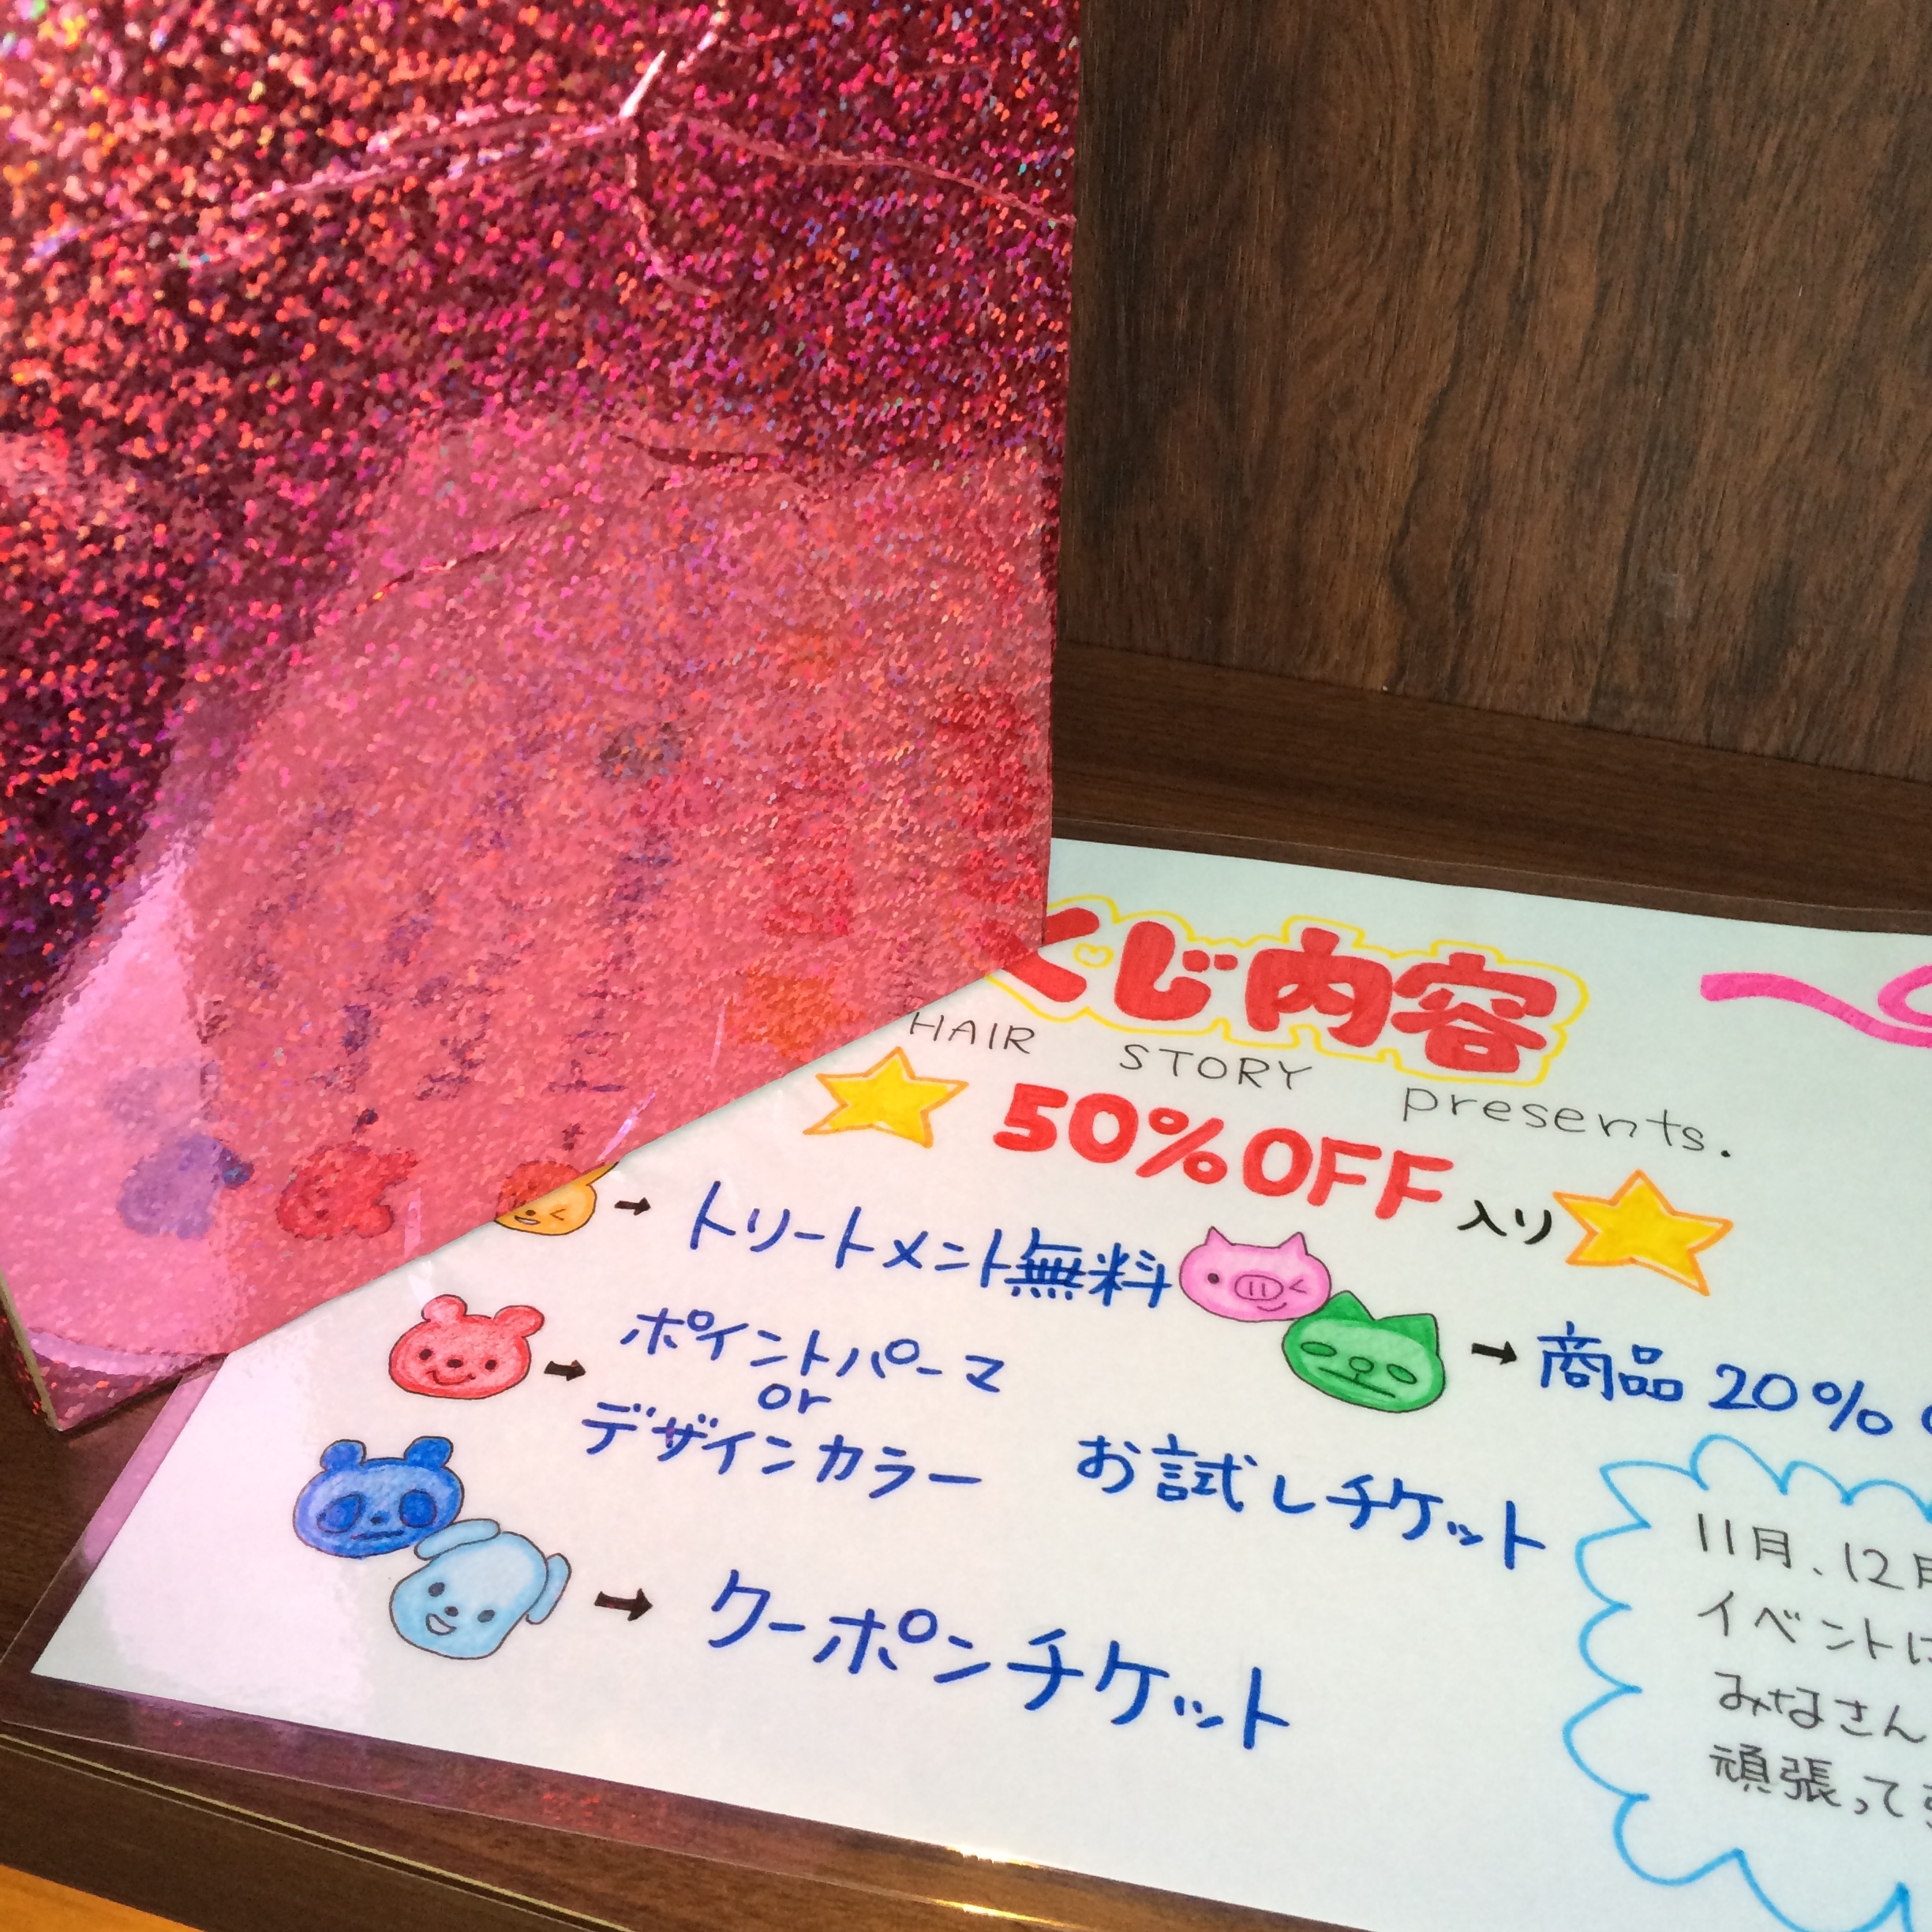 くじ内容
HAIR STORY presents.
50%OFF入り
→ トリートメント無料
→ 商品 20%
→ ポイントパーマ
or
デザインカラー お試しチケット
→ クーポンチケット
11月、12月
イベント
みなさん
頑張って